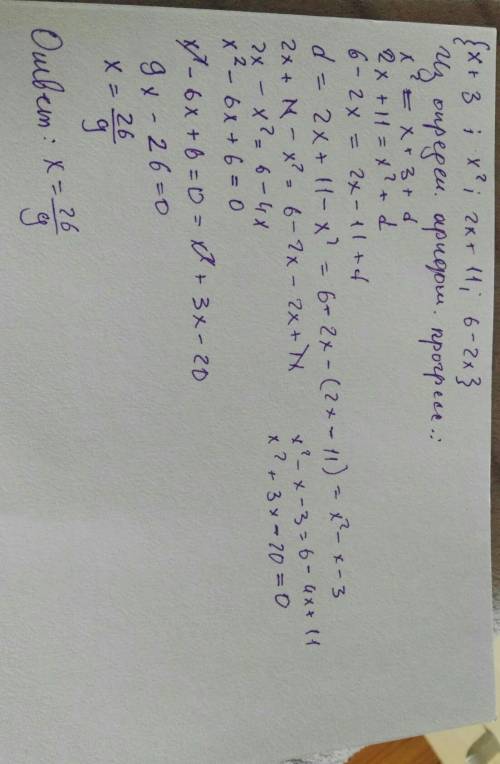 {x + 3 ; x²; 2x + 11; 6 - 2x}
Из определ. арифм. прогресс.:
x² = x + 3 + d
2x + 11 = x² + d
6 - 2x = 2x - 11 + d
d = 2x + 11 - x² = 6 - 2x - (2x - 11) = x² - x - 3
2x + 11 - x² = 6 - 2x - 2x + 11
x² - x - 3 = 6 - 4x + 11
2x - x² = 6 - 4x
x² + 3x - 20 = 0
x² - 6x + 6 = 0
x² - 6x + 6 = 0 = x² + 3x - 20
9x - 26 = 0
x = 26/9
Ответ: x = 26/9